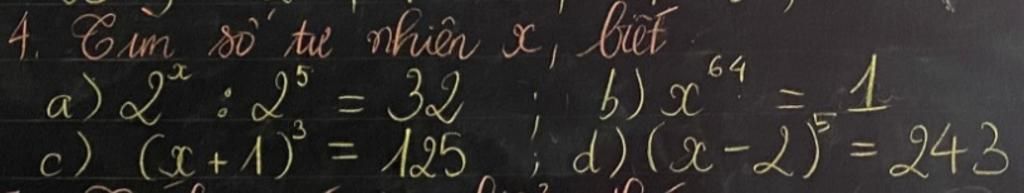 4. Tìm số tự nhiên x, biết
a) 2^x : 2^5 = 32 ; b) x^64 = 1
c) (x + 1)^3 = 125 ; d) (x - 2)^5 = 243